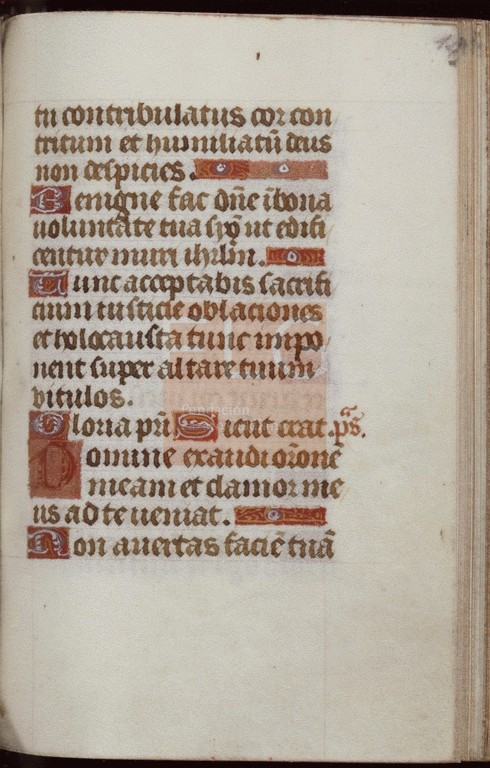 tu contribulatus cor con
tritum et humiliatū deus
non despicies.
Benigne fac dn̄e ī bona
voluntate tua syō ut edifi
centur muri ihrlm̄.
Tunc acceptabis sacrifi
cium iusticie oblationes
et holocausta tunc impo
nent super altare tuum
vitulos.
Gloria pr̄i Sicut erat. ps̄.
Domine exaudi orōnē
meam et clamor me
us ad te ueniat.
Non auertas faciē tuā